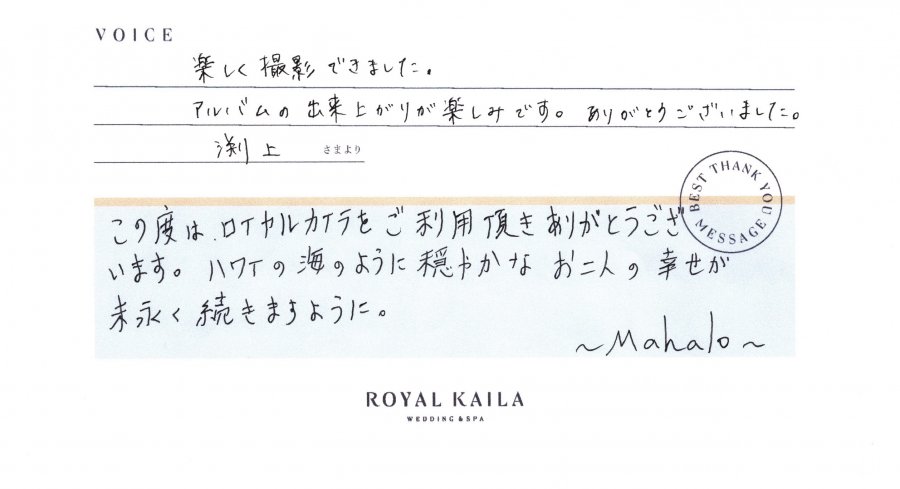 VOICE
楽しく撮影できました。
アルバムの出来上がりが楽しみです。ありがとうございました。
渕上 さまより
BEST THANK YOU MESSAGE
この度は、ロイヤルカイラをご利用頂きありがとうござ
います。ハワイの海のように穏やかなお二人の幸せが
末永く続きますように。
~Mahalo~
ROYAL KAILA
WEDDING & SPA